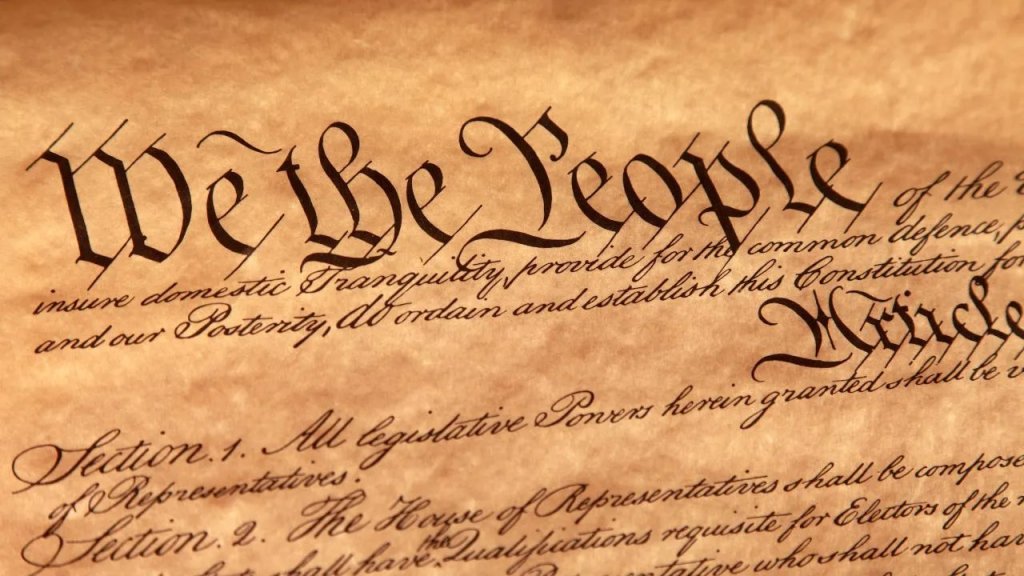 We the People of the
insure domestic Tranquility, provide for the common defence,
and our Posterity, do ordain and establish this Constitution fo
Article
Section. 1. All legislative Powers herein granted shall be
of Representatives.
Section. 2. The House of Representatives shall be compose
shall have the Qualifications requisite for Electors of the
Representative who shall not hav